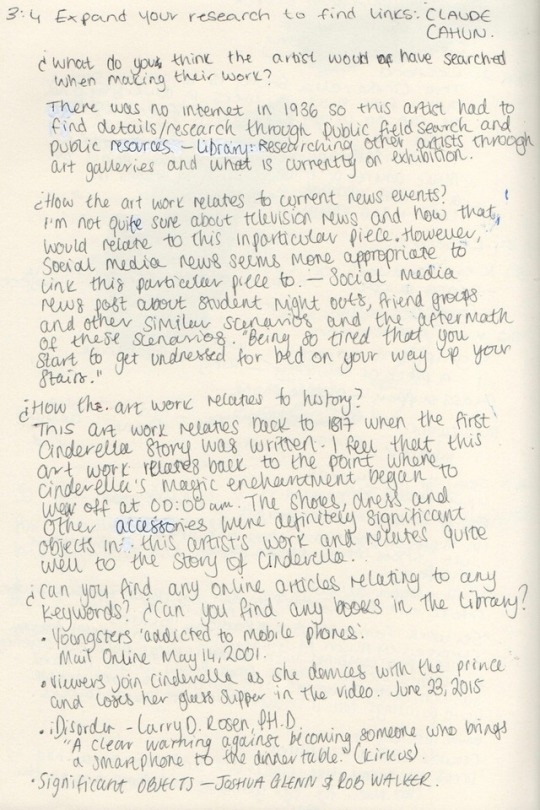 3:4 Expand your research to find links: CLAUDE
CAHUN.
¿What do you think the artist would of have searched
when making their work?
There was no internet in 1936 so this artist had to
find details/research through public field search and
public resources - Library: Researching other artists through
art galleries and what is currently on exhibition.
¿How the art work relates to current news events?
I'm not quite sure about television news and how that
would relate to this inparticular piece. However,
Social media news seems more appropriate to
link this particular piece to. - Social media
news post about student night outs, friend groups
and other similar scenarios and the aftermath
of these scenarios. "Being so tired that you
start to get undressed for bed on your way up your
stairs."
¿How the art work relates to history?
This art work relates back to 1817 when the first
Cinderella Story was written. I feel that this
art work relates back to the point where
Cinderella's magic enchantment began to
wear off at 00:00am. The shoes, dress and
other accessories were definitely significant
objects in this artist's work and relates quite
well to the story of Cinderella.
¿Can you find any online articles relating to any
keywords? ¿Can you find any books in the library?
• Youngsters 'addicted to mobile phones'.
Mail Online May 14, 2001.
• Viewers join Cinderella as she dances with the prince
and loses her glass slipper in the video. June 23, 2015
• iDisorder - Larry D. Rosen, PH.D.
"A clear warning against becoming someone who brings
a smartphone to the dinner table." (Kirkus).
• Significant OBJECTS - JOSHUA GLENN & ROB WALKER.